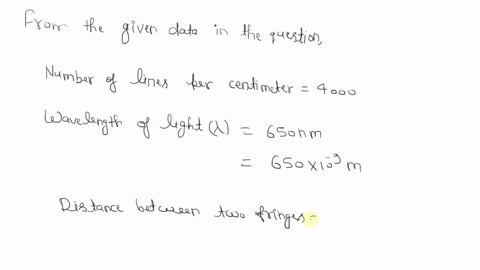 From the given data in the question,
Number of lines per centimeter = 4000
Wavelength of light (λ) = 650nm
= 650×10⁻⁹ m
Distance between two fringes =